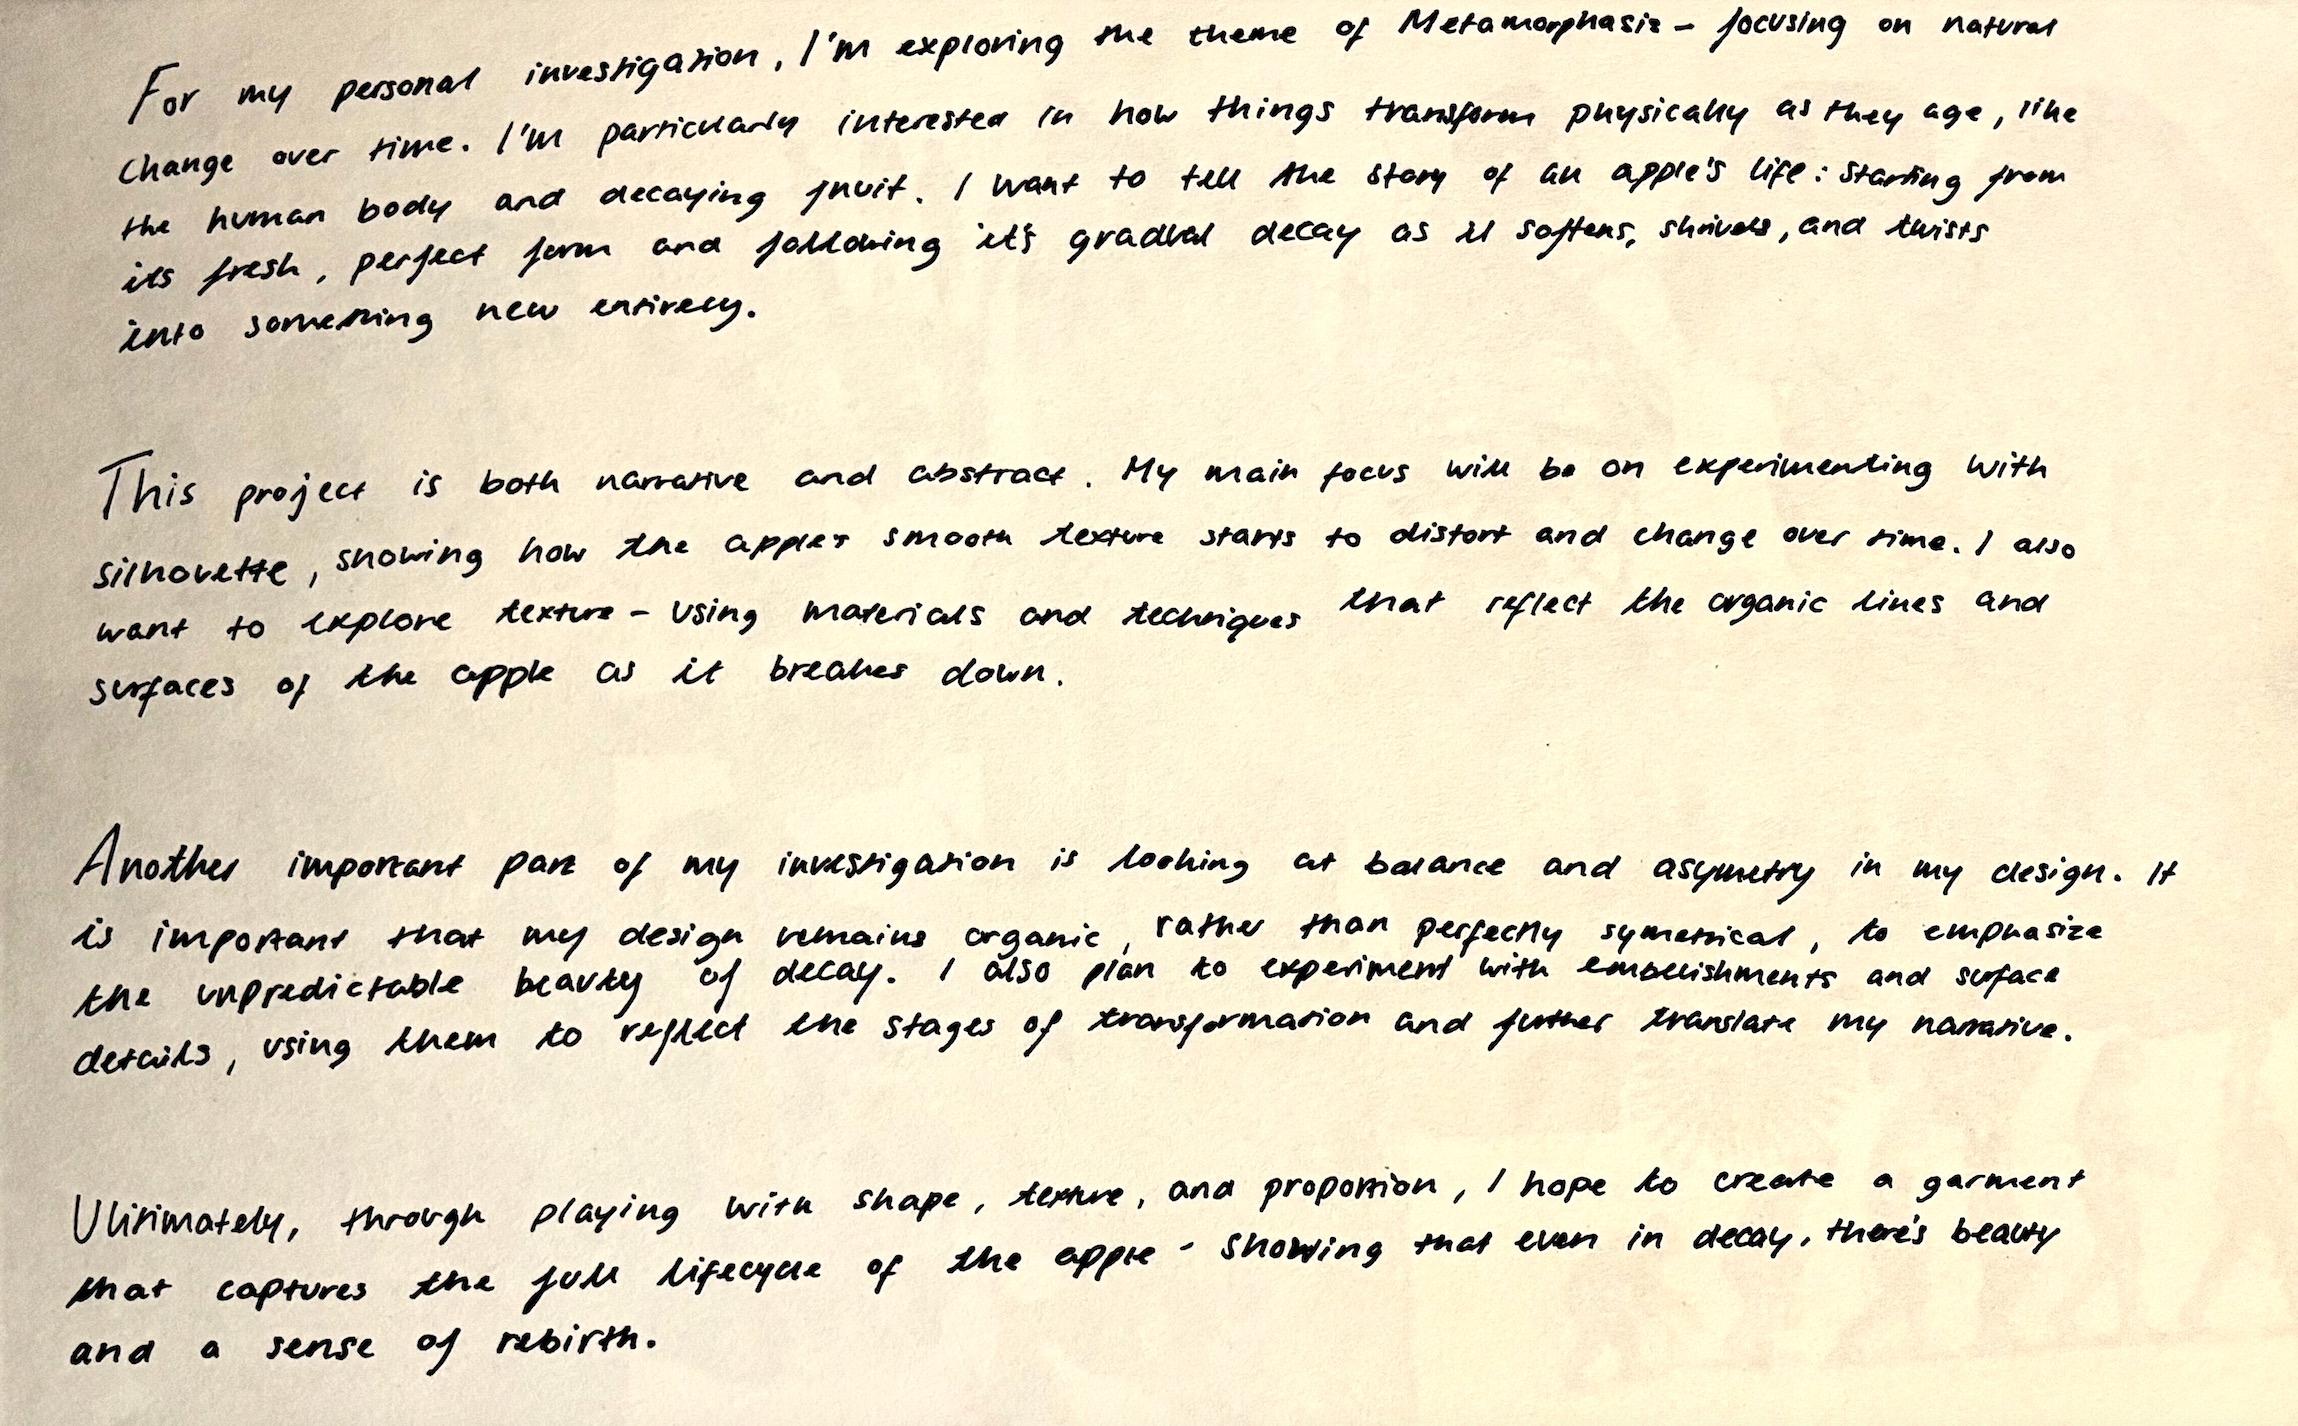 For my personal investigation, I'm exploring the theme of Metamorphasis - focusing on natural
change over time. I'm particularly interested in how things transform physically as they age, like
the human body and decaying fruit. I want to tell the story of an apple's life: starting from
its fresh, perfect form and following it's gradual decay as it softens, shrivels, and twists
into something new entirely.
This project is both narrative and abstract. My main focus will be on experimenting with
silhouette, showing how the apple's smooth texture starts to distort and change over time. I also
want to explore texture - using materials and techniques that reflect the organic lines and
surfaces of the apple as it breakes down.
Another important part of my investigation is looking at balance and asymetry in my design. It
is important that my design remains organic, rather than perfectly symetrical, to emphasize
the unpredictable beauty of decay. I also plan to experiment with embelishments and surface
details, using them to reflect the stages of transformation and further translate my narrative.
Ulitimately, through playing with shape, texture, and proportion, I hope to create a garment
that captures the full lifecycle of the apple - showing that even in decay, there's beauty
and a sense of rebirth.